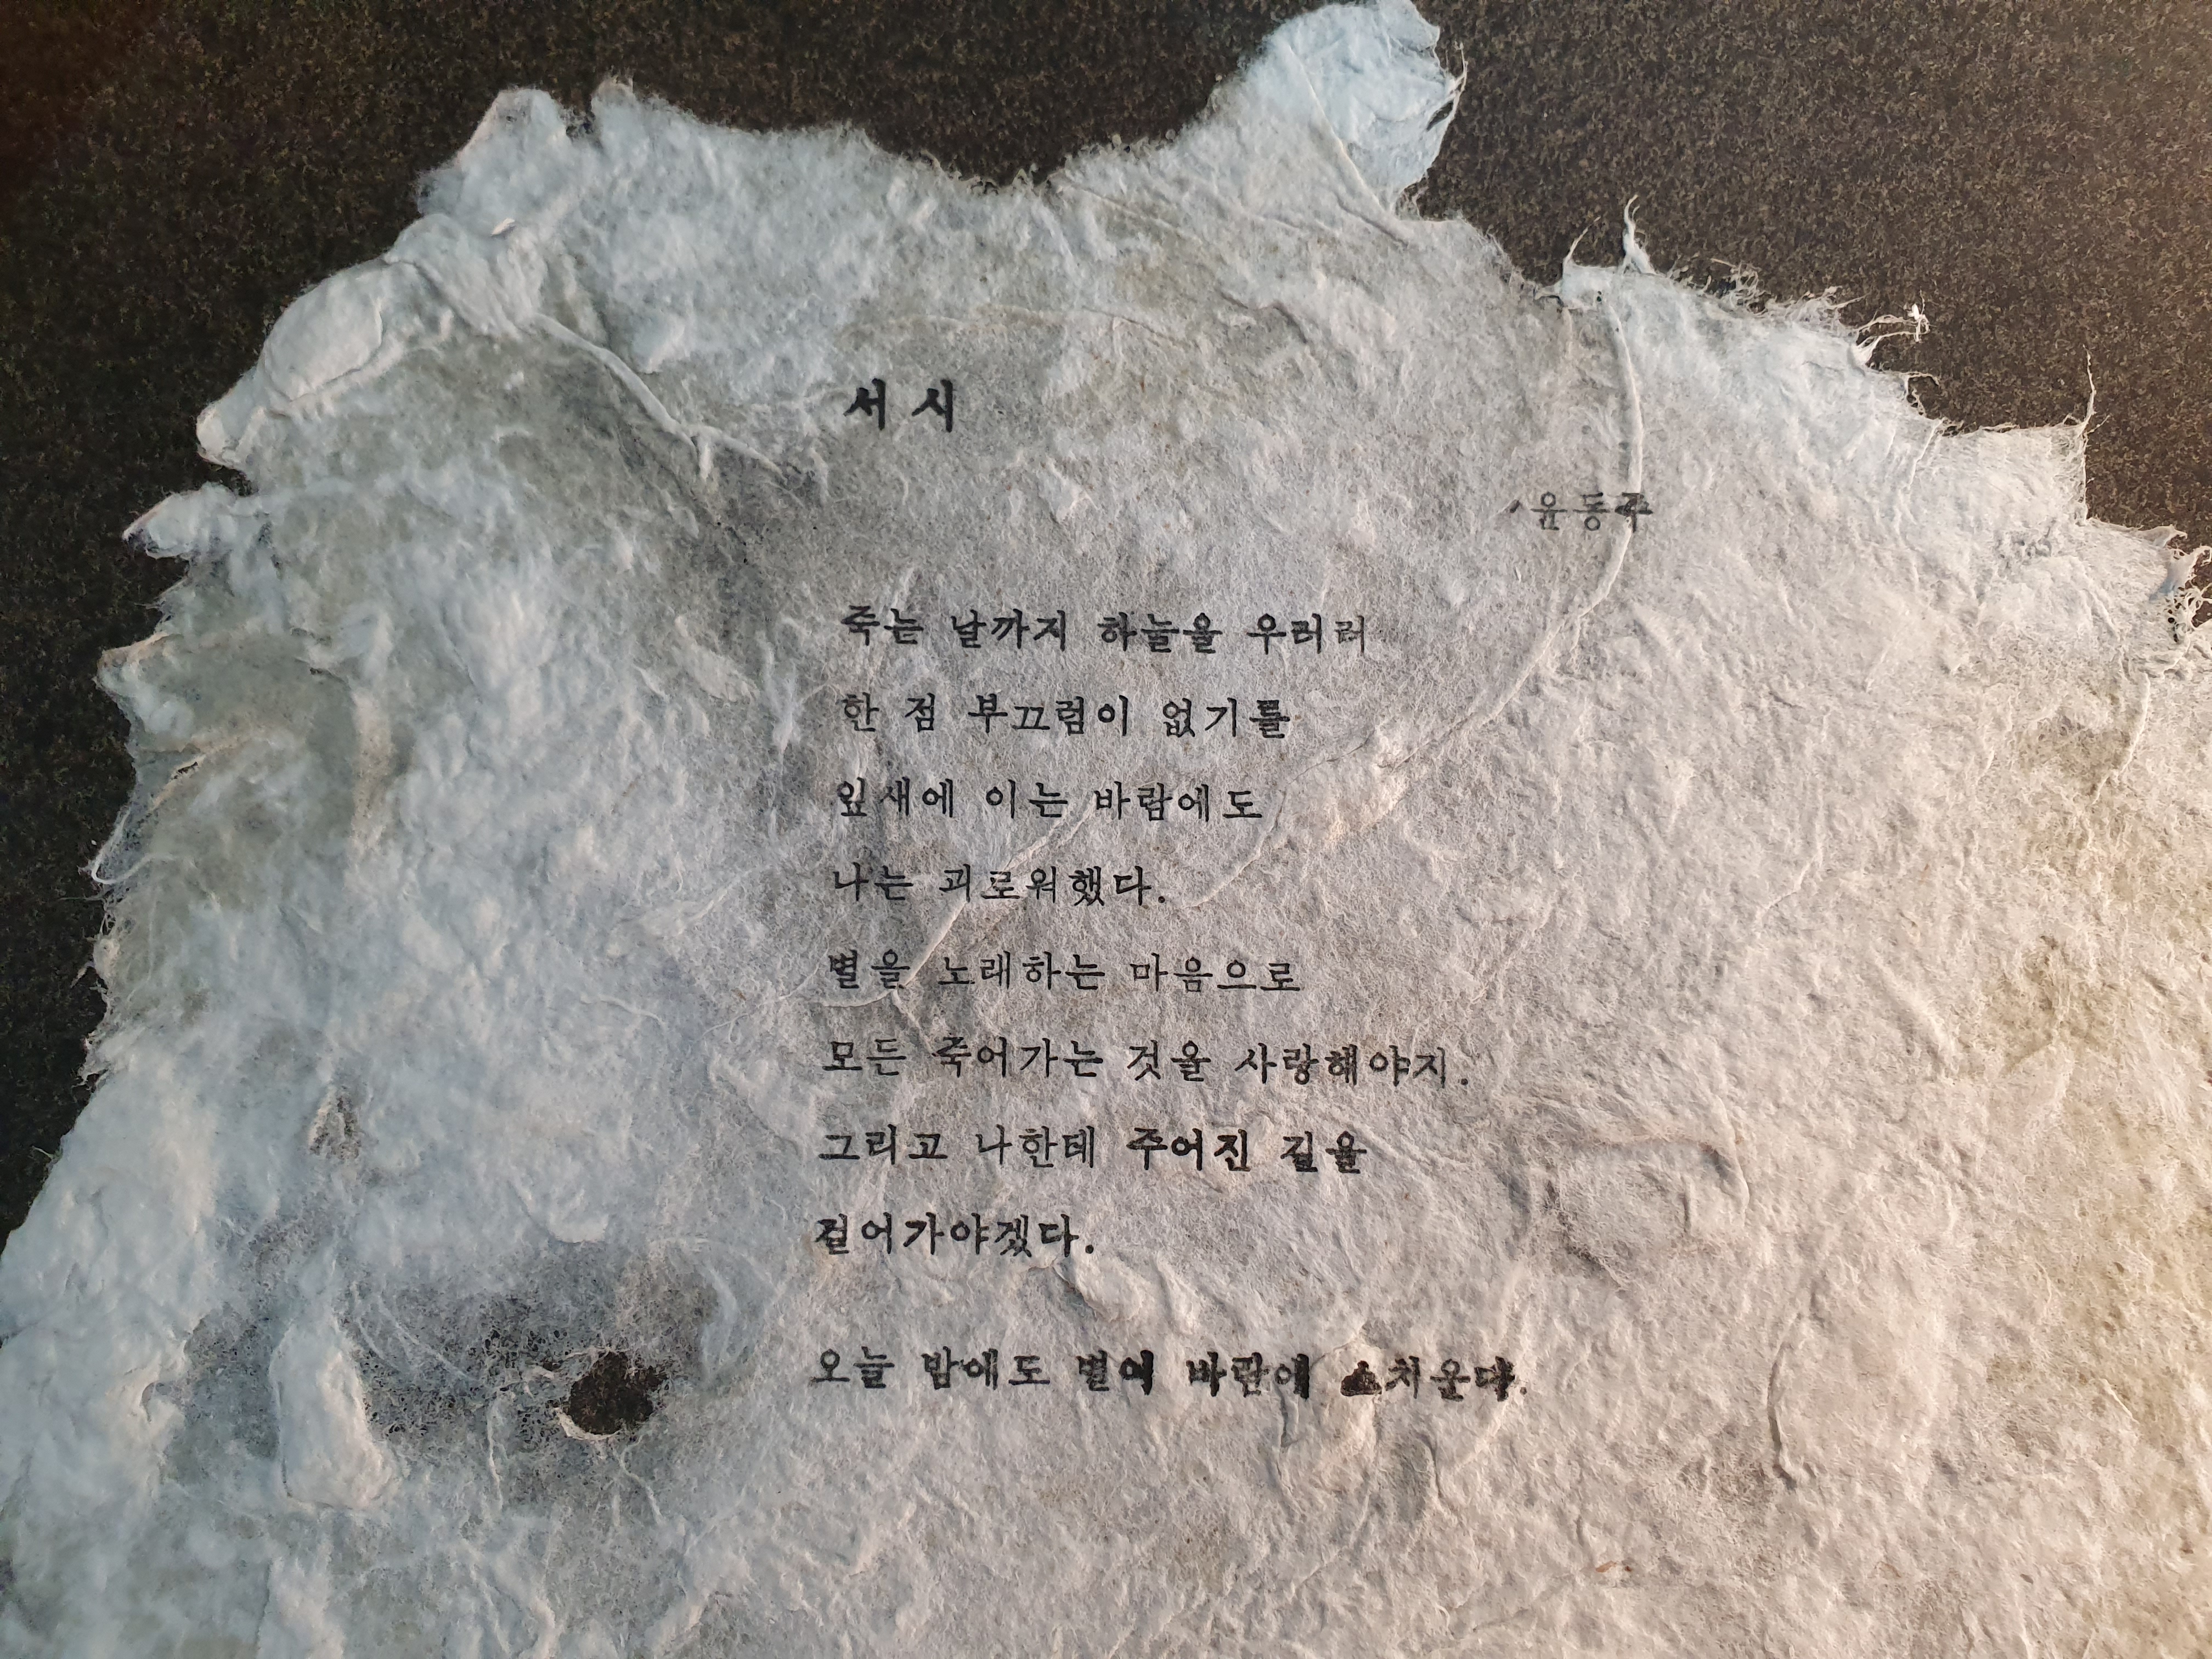 서시
윤동주
죽는 날까지 하늘을 우러러
한 점 부끄럼이 없기를
잎새에 이는 바람에도
나는 괴로워했다.
별을 노래하는 마음으로
모든 죽어가는 것을 사랑해야지.
그리고 나한테 주어진 길을
걸어가야겠다.
오늘 밤에도 별이 바람에 스치운다.